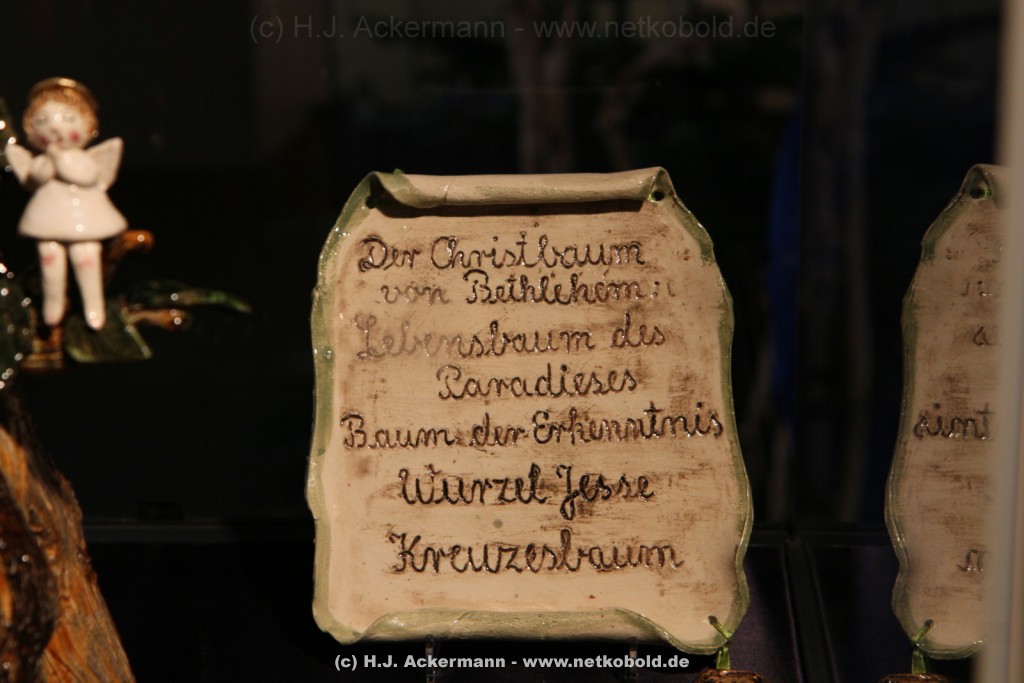 (c) H.J. Ackermann - www.netkobold.de
Der Christbaum
von Bethlehem:
Lebensbaum des
Paradieses
Baum der Erkenntnis
Wurzel Jesse
Kreuzesbaum
(c) H.J. Ackermann - www.netkobold.de